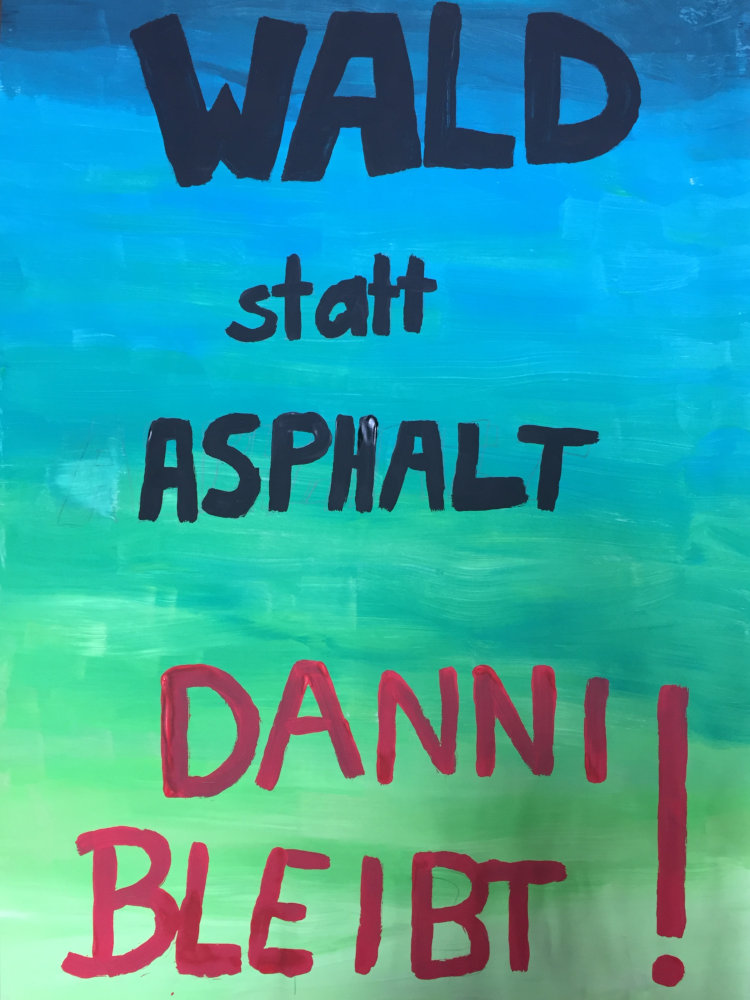 WALD
statt
ASPHALT
DANNI
BLEIBT!